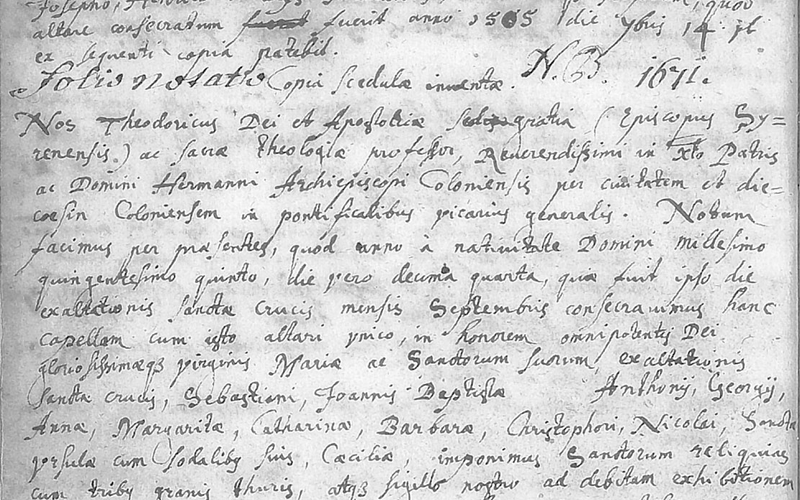 altare consecratum fuerit anno 1505 die 7bris 14 ut
ex sequenti copia patebit.
Folio notato Copia scedulæ inventæ. N.B. 1671.
Nos Theodoricus Dei et Apostolicæ sedis gratia (Episcopus Sy=
renensis) ac sacræ theologiæ professor, Reverendissimi in Xto Patris
ac Domini Hermanni Archiepiscopi Coloniensis per civitatem et die=
coesin Coloniensem in pontificalibus vicarius generalis. Notum
facimus per præsentes, quod anno à nativitate Domini millesimo
quingentesimo quinto, die vero decima quarta, quæ fuit ipso die
exaltationis sanctæ crucis mensis Septembris consecravimus hanc
capellam cum isto altari vnico, in honorem omnipotentis Dei
gloriosissimæq3 virginis Mariæ ac Sanctorum suorum, exaltationis
sanctæ crucis, Sebastiani, Joannis Baptistæ Anthonij, Georgij,
Annæ, Margaritæ, Catharinæ, Barbaræ, Christophori, Nicolai, Sanctæ
vrsulæ cum sodalib9 suis, Cæciliæ, imponimus Sanctorum reliquias
cum trib9 granis thuris, atq3 sigillo nostro ad debitam exhibitionem